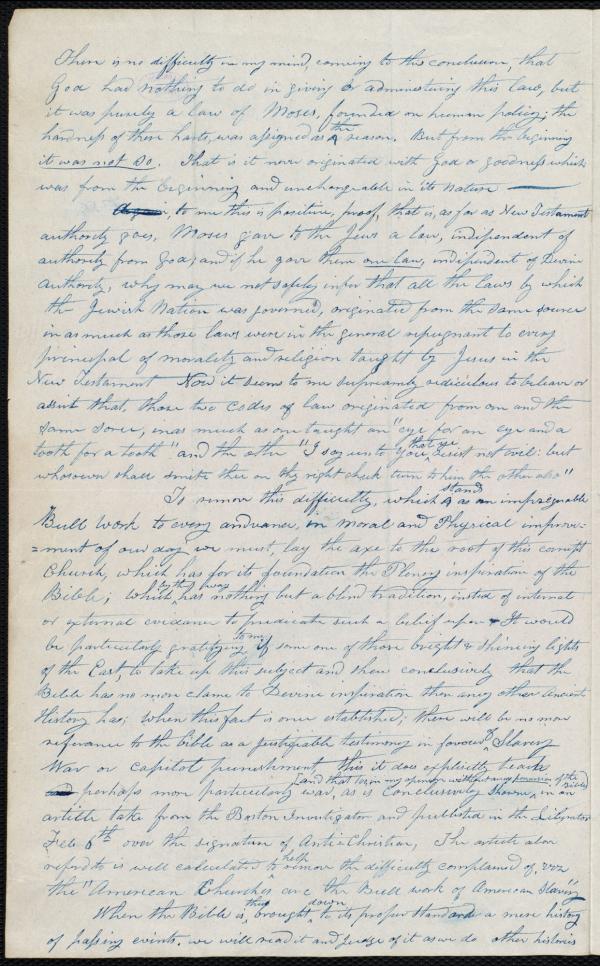 There is no difficulty in my mind, coming to this conclusion, that
God had nothing to do in giving or administering this law, but
it was purely a law of Moses, founded on human policy; the
hardness of there harts, was assigned as the reason. But from the beginning
it was not so. That is it never originated with God or goodness which
was from the beginning and unchangeable in its nature —
Again, to me this is positive, proof, that is, as far as New Testament
authority goes, Moses gave to the Jews a law, independent of
authority from God, and if he gave them one law, independent of Devine
authority, why may we not safely infer that all the laws by which
the Jewish Nation was governed, originated from the same source
in as much as those laws were in the general repugnant to every
principal of morality and religion taught by Jesus in the
New Testament Now it seems to me supreamly ridiculous to beleave or
assert that, those two codes of law originated from one and the
same sorce, inas much as one taught an "eye for an eye and a
tooth for a tooth" and the other "I say unto you, that ye resist not evil: but
whosoever shall smite thee on thy right cheek turn to him the other also"
To remove this difficulty, which stand as an impregnable
Bull work to every andvance, in Moral and Physical improve-
=ment of our day, we must, lay the axe to the root of this corrupt
Church, which has for its foundation the Plenery inspiration of the
Bible; which, by the way has nothing but a blind tradition, insted of internal
or external evidance to predicate such a belief upon & It would
be particularly gratifying to me if some one of those bright & shineing lights
of the East, to take up this subject and show conclusively that the
Bible has no more clame to Devine inspiration then any other Ancient
History has; When this fact is once established; there will be no more
referance to the bible as a justifiable testimony in favour of Slavery
War or capitol punishment, this it does explicitly teach
and perhaps more particularly war, as is conclusively shown, in an
article take from the Boston Investigator and published in the Liberator
Feb. 6th over the signature of Anti=Christian, The article above
referd to is well calculated to help remove the difficulty complained of, viz
the "American Churches are the Bull work of American Slavery"
When the Bible is, thus brought down to its proper standard a mere history
of passing events. we will read it and judge of it as we do other histories